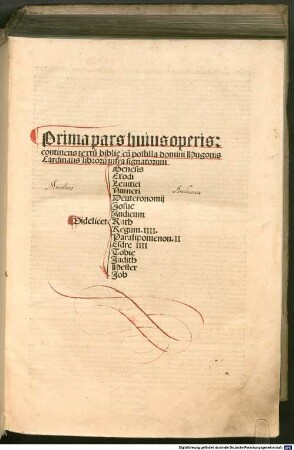 Prima pars huius operis:
continens textū biblie cū postilla domini Hugonis
Cardinalis librorū infra signatorum
Genesis
Exodi
Leuitici
Numeri
Deuteronomij
Josue
Judicum
Videlicet Ruth
Regum. IIII.
Paralipomenon. II
Esdre IIII
Tobie
Judith
Hester
Job